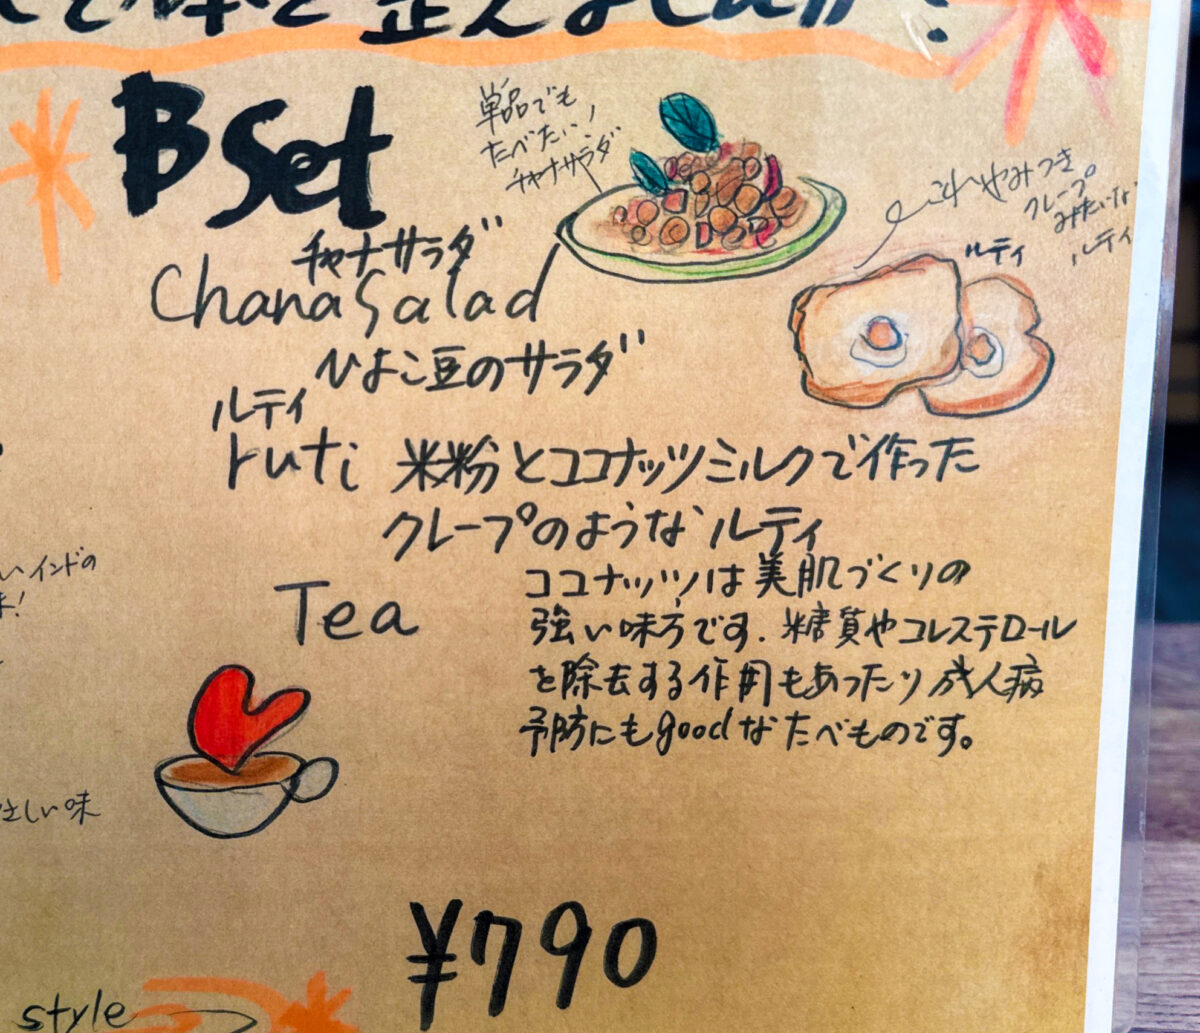 B Set
単品でも
たべたい!
チャナサラダ
これやみつき
クレープ
みたいな
ルティ
ルティ
チャナサラダ
Chana Salad
ひよこ豆のサラダ
ルティ
ruti 米粉とココナッツミルクで作った
クレープのようなルティ
ココナッツは美肌づくりの
強い味方です. 糖質やコレステロール
を除去する作用もあったり成人病
予防にもgoodなたべものです。
Tea
いインドの
味!
しい味
¥790
style